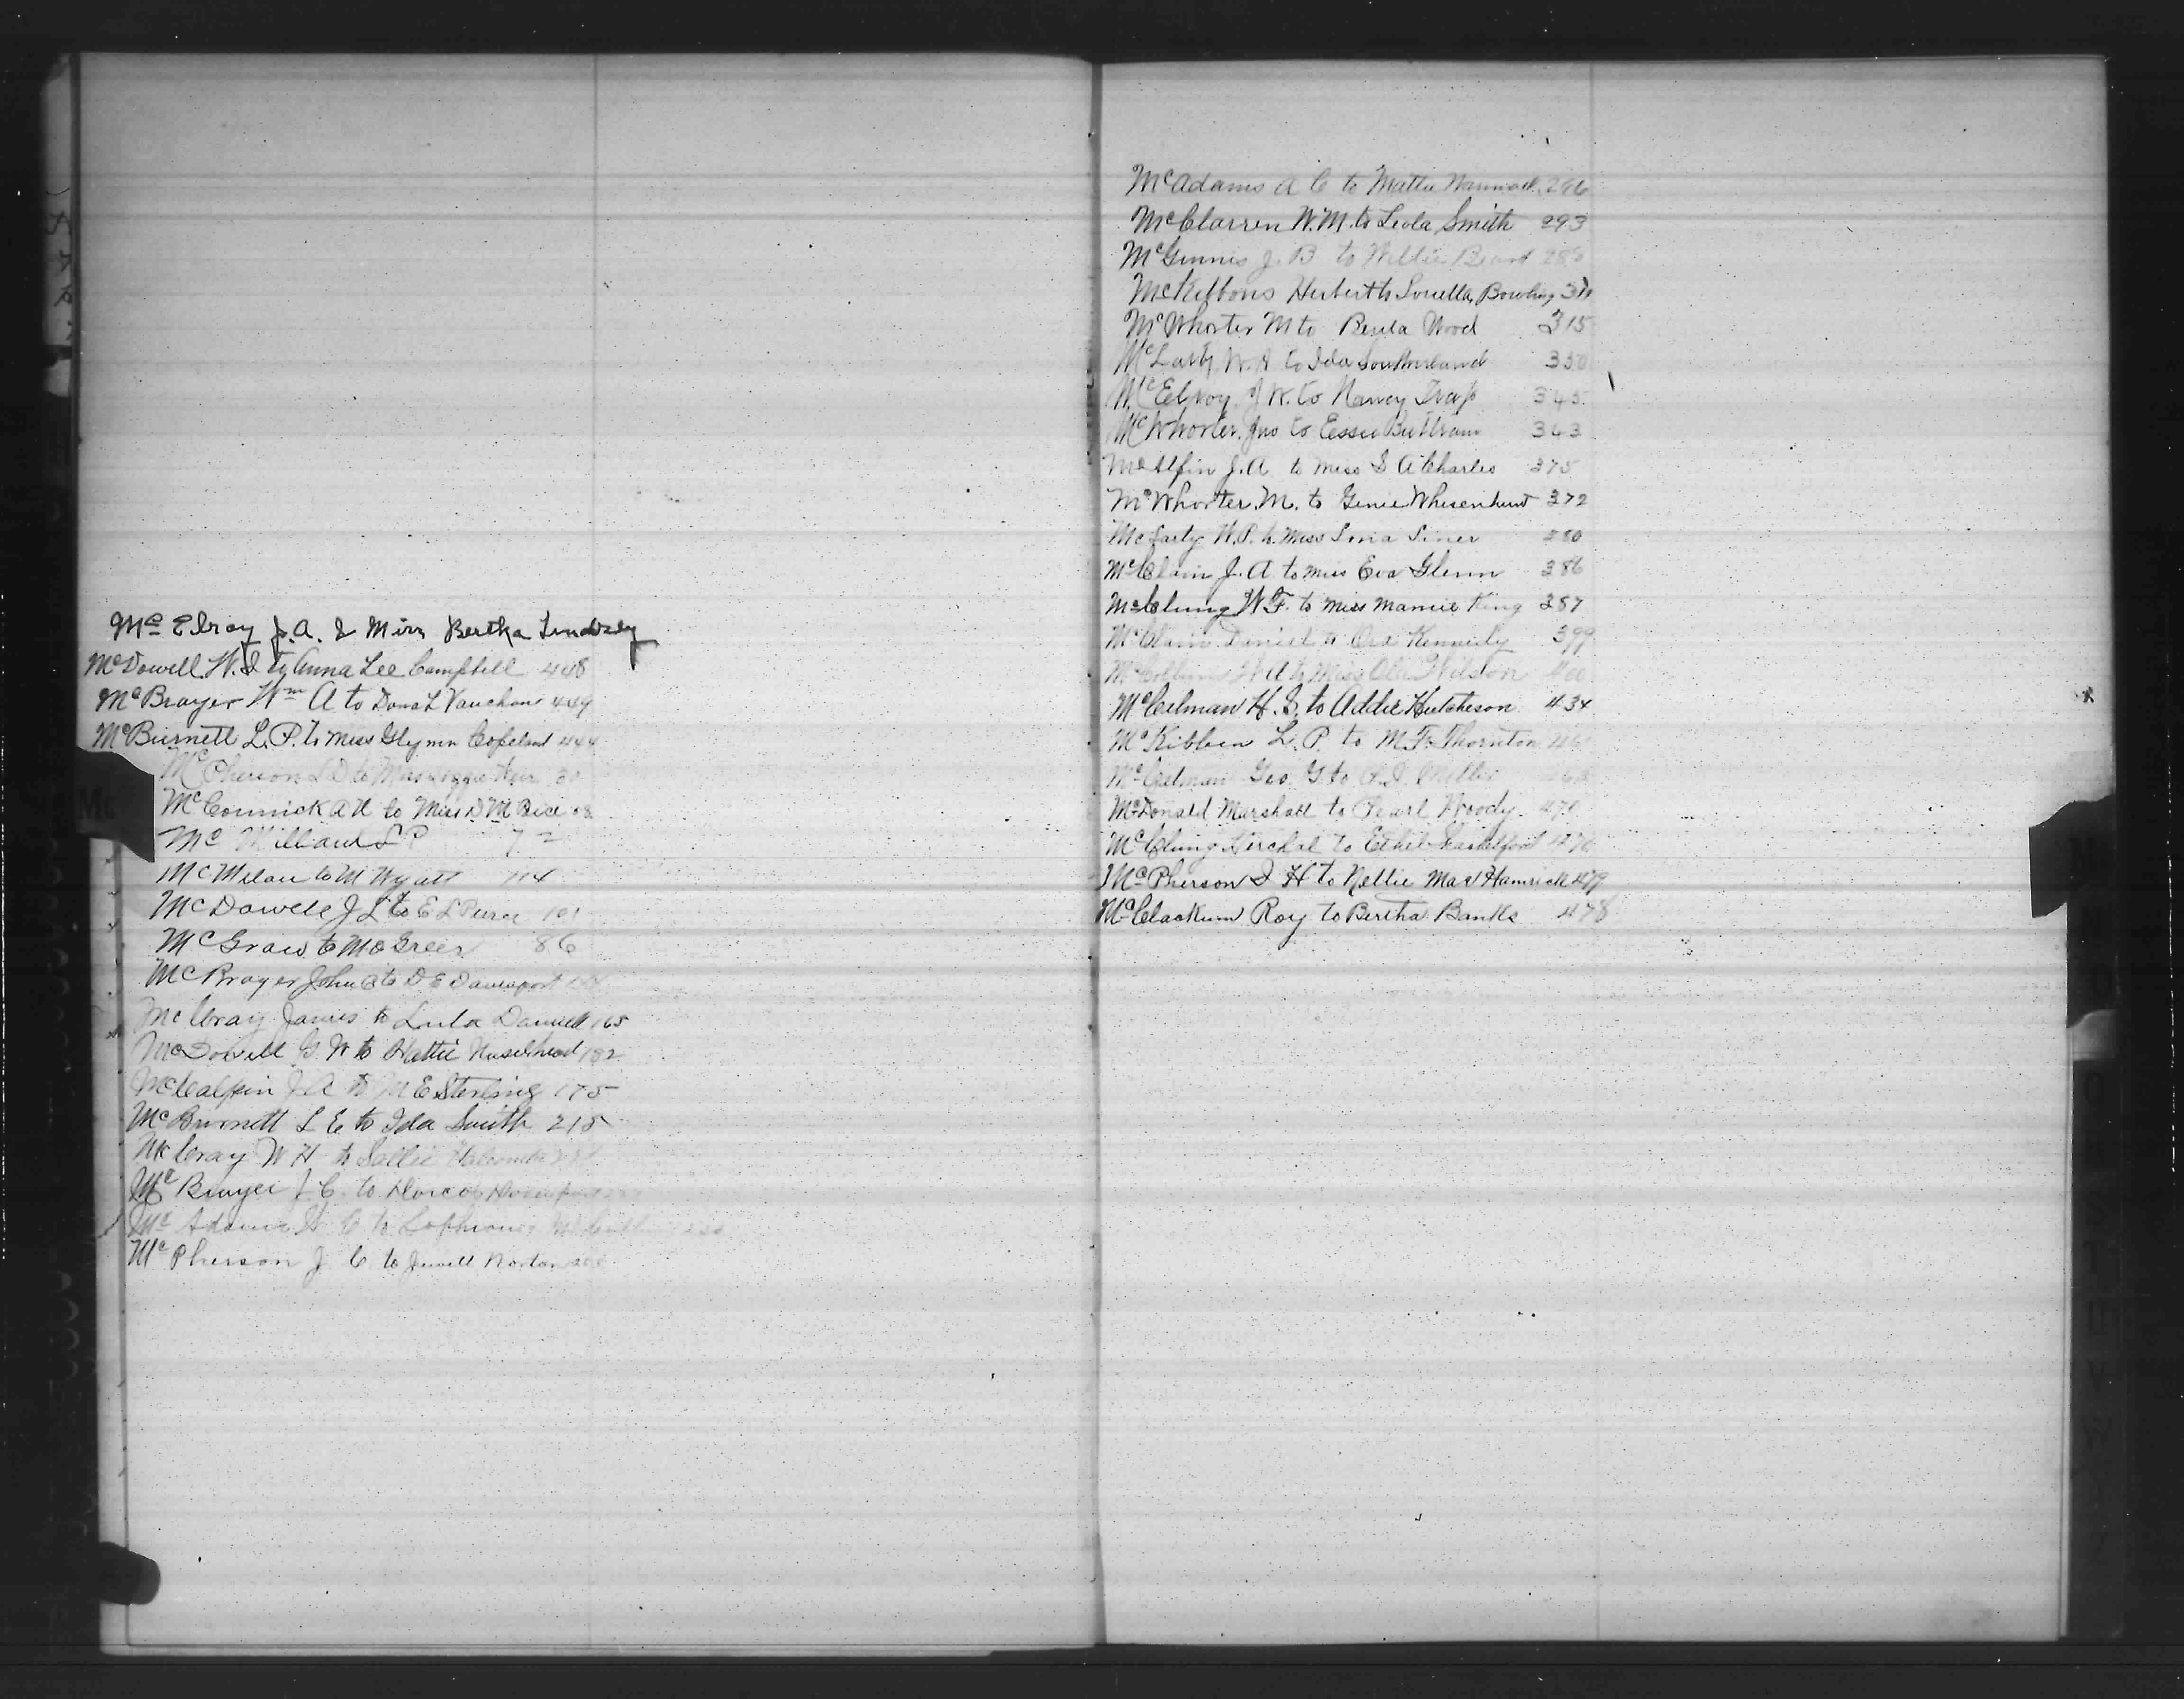 Mc Elroy J. A. & Miss Bertha Lindsey
McDowell W. I to Anna Lee Campbell 448
McBrayer Wm A to Dona L Vaughan 449
McBurnett L. P. to Miss Glymn Copeland 444
McPherson L D to Miss 30
McCormick A H to Miss D M Bice 08
Mc Milland S P 7
McMilan to M Wyatt 114
McDowell J L to E L Pierce 101
McGraw to M E Greer 86
McBrayer John C to D E Davenport
McCray James to Lula Daniell 165
McDowell G. W to Hattie Muselhead 182
McCalpin J A to M E Sterling 175
McBurnett L E to Ida Smith 215
McCray W H to Sallie
Mc Brayer J C. to Dorcas Davenport
Mc Adams C to
Mc Pherson J C to Jewell Norton
McAdams A C to Mattie Warmack 296
McClarren W. M. to Leola Smith 293
McGinnis J. B to Willie Beard
McKibbons Herbert to Louella Bowling
McWhorter M to Beula Wood 315
McLarty W. A to Ida Southerland 330
McElroy J W. to Nancy Trap 345
McWhorter Jno to Essie Buttram 343
McAlpin J. A to Miss S A Charles 375
McWhorter M. to Genie Whisenhunt 372
McLarty W. P. to Miss Siner 380
McClain J. A to Miss Eva Glenn 386
McClung W F. to Miss Mamie King 387
McClain Daniel to Ora Kennedy 399
McCollum W A to Miss Ola Wilson 400
McCalman H. S. to Addie Hutcheson 434
McKibben L. P. to M. F. Thornton
McCalman Geo. G to
McDonald Marshall to Pearl Woody 471
McClung Hirchel to Ethel Shackelford 476
McPherson I H to Nellie Mae Hamrick 479
McClackum Roy to Bertha Banks 478